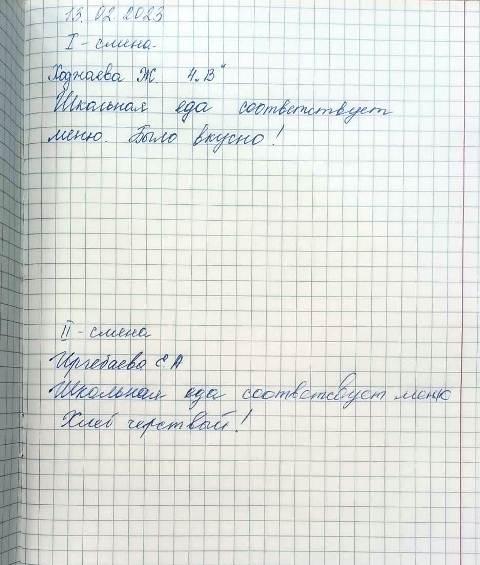 13.02.2023
I - смена.
Ходжаева Ж. 4„В"
Школьная еда соответствует
меню. Было вкусно!
II - смена
Иргебаева Е А
Школьная еда соответсвует меню
Хлеб черствый!